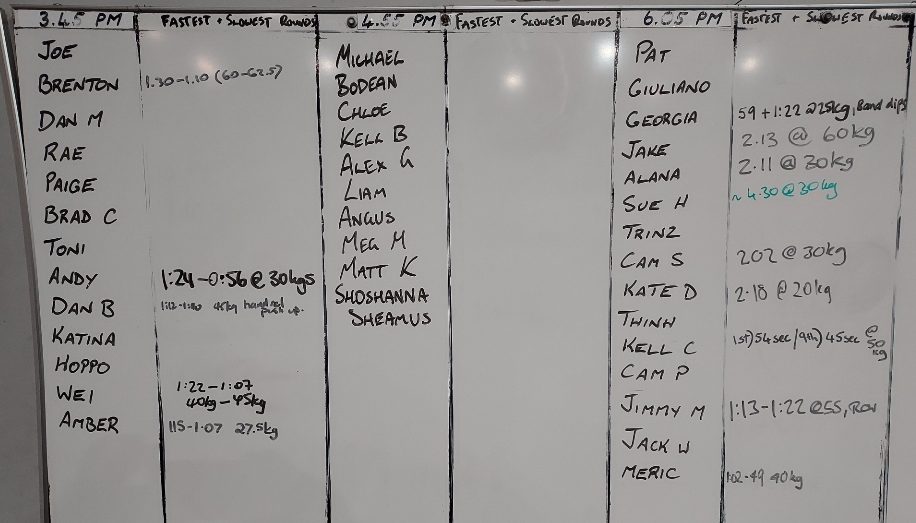 3.45 PM FASTEST + SLOWEST ROUNDS
JOE
BRENTON 1.30-1.10 (60-62.5)
DAN M
RAE
PAIGE
BRAD C
TONI
ANDY 1:24-0:56@30kgs
DAN B 45kg hand rel
push up.
KATINA
HOPPO
WEI 1:22-1:07
40kg-45kg
AMBER 115-1.07 27.5kg
4.55 PM FASTEST + SLOWEST ROUNDS
MICHAEL
BODEAN
CHLOE
KELL B
ALEX G
LIAM
ANGUS
MEG M
MATT K
SHOSHANNA
SHEAMUS
6.05 PM FASTEST + SLOWEST ROUNDS
PAT
GIULIANO
GEORGIA 59+1:22 @25kg, Band dips
JAKE 2.13 @ 60kg
ALANA 2.11@30kg
SUE H ~4.30@30kg
TRINZ
CAM S 202 @30kg
KATE D 2.18 @20kg
THINH
KELL C 1st)54sec/9th)45sec @
50
kg
CAM P
JIMMY M 1:13-1:22@55, Row
JACK W
MERIC 1:02-49 40kg